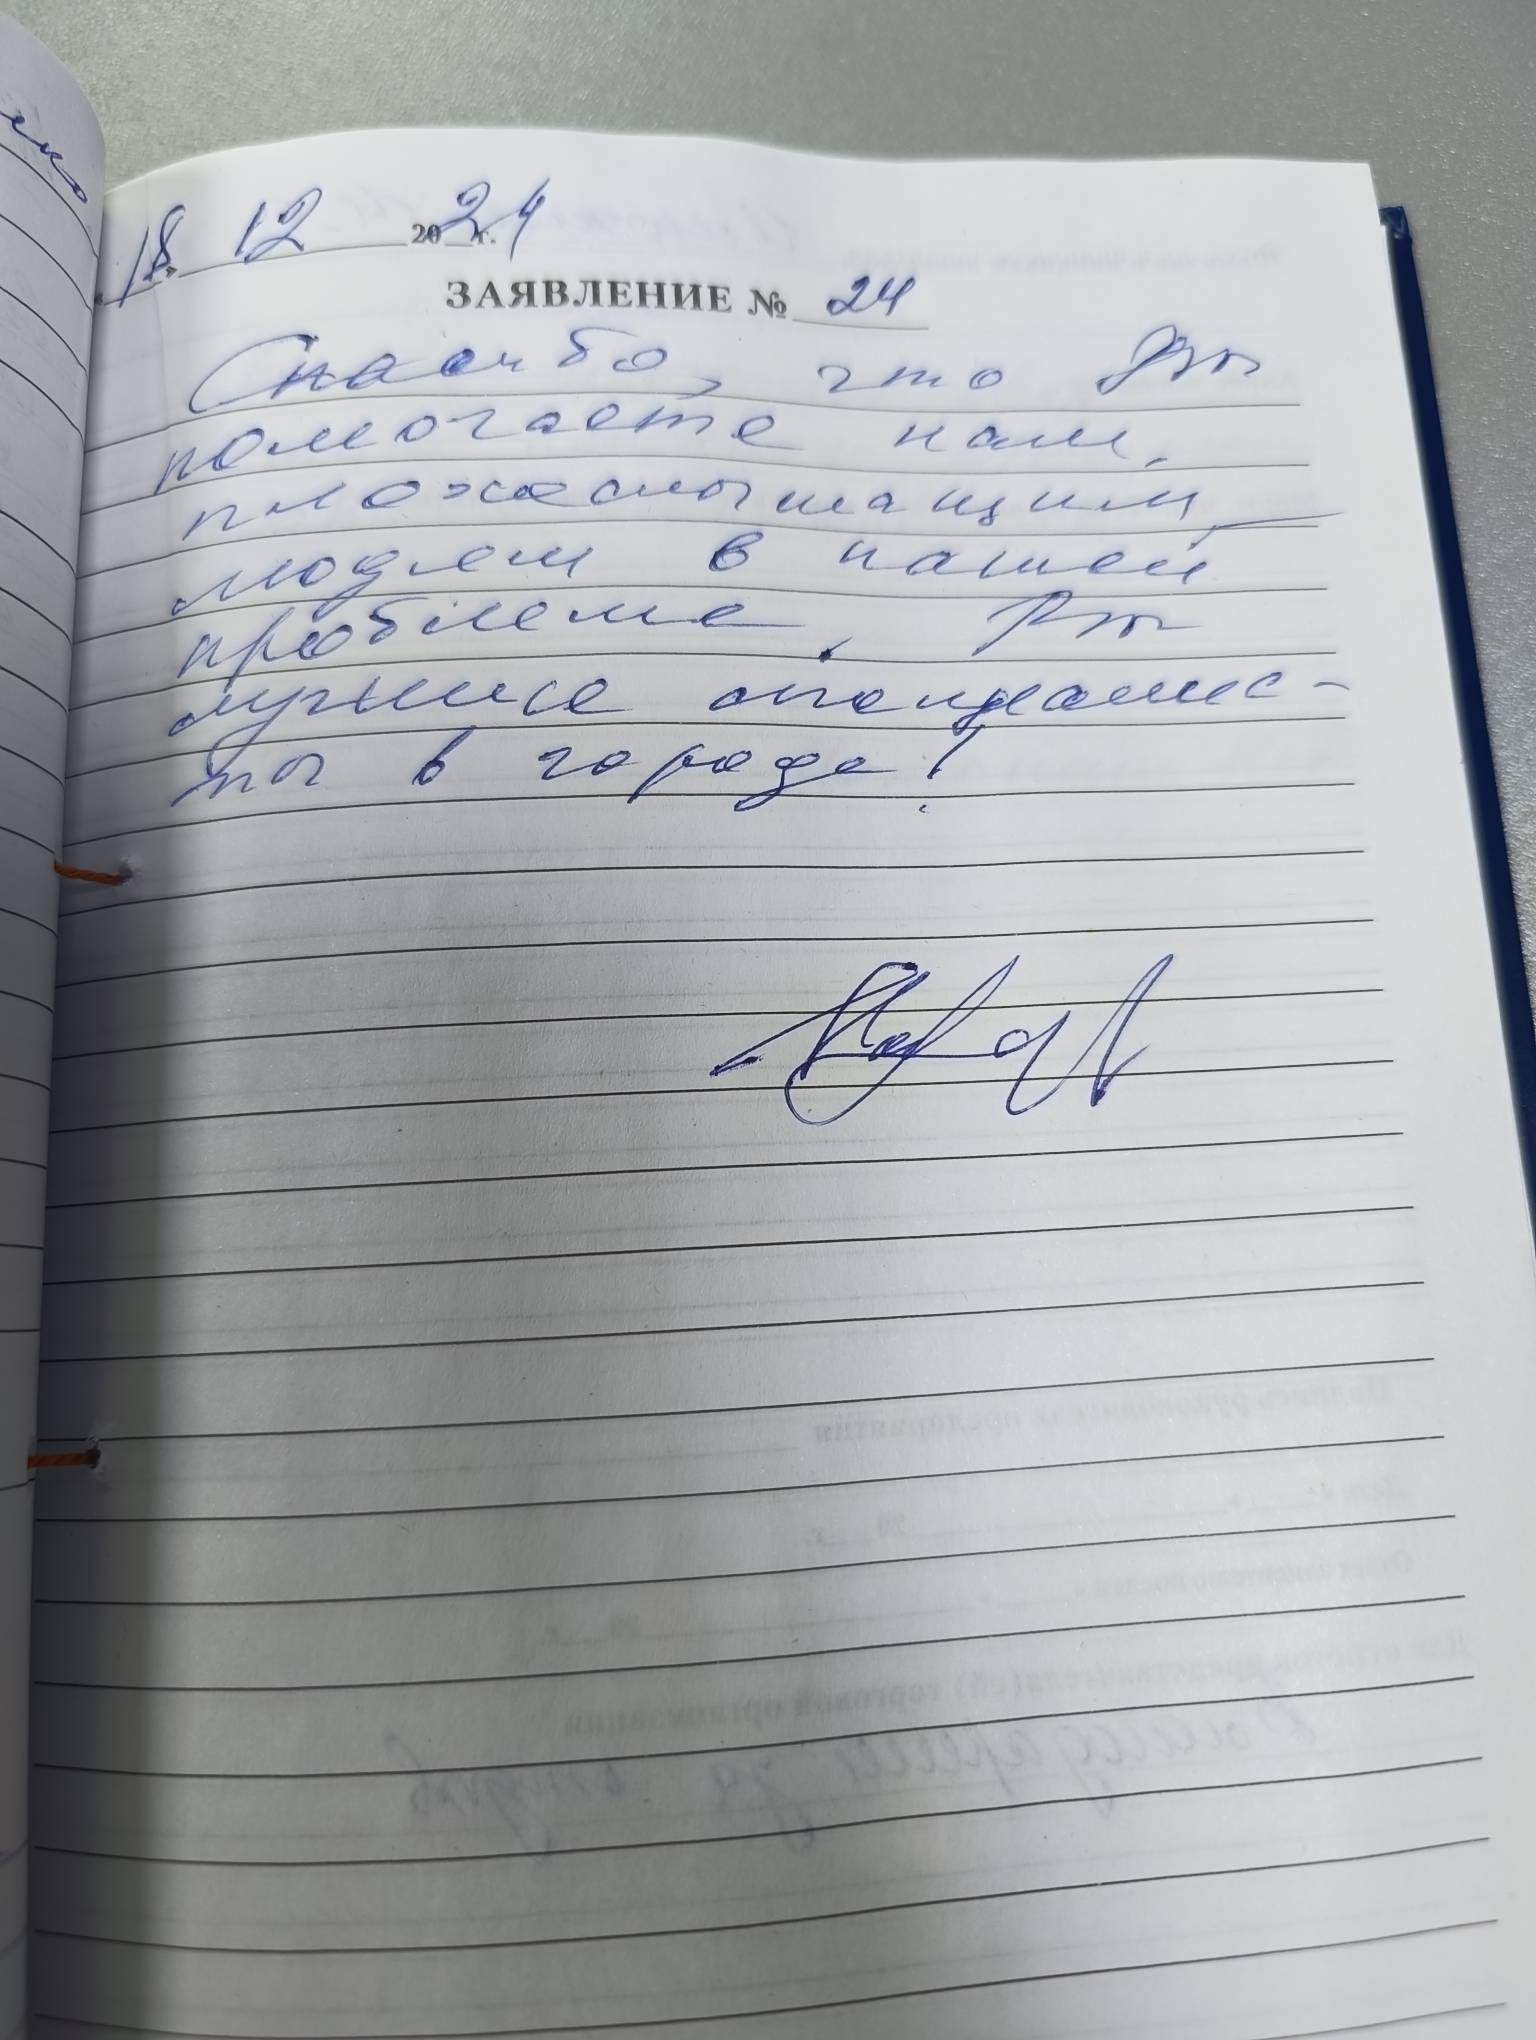 « 18 » 12 2024 г.
ЗАЯВЛЕНИЕ № 24
Спасибо, что Вы
помогаете нам,
плохослышащим,
людям в нашей
проблеме. Вы
лучшие специалис-
ты в городе!